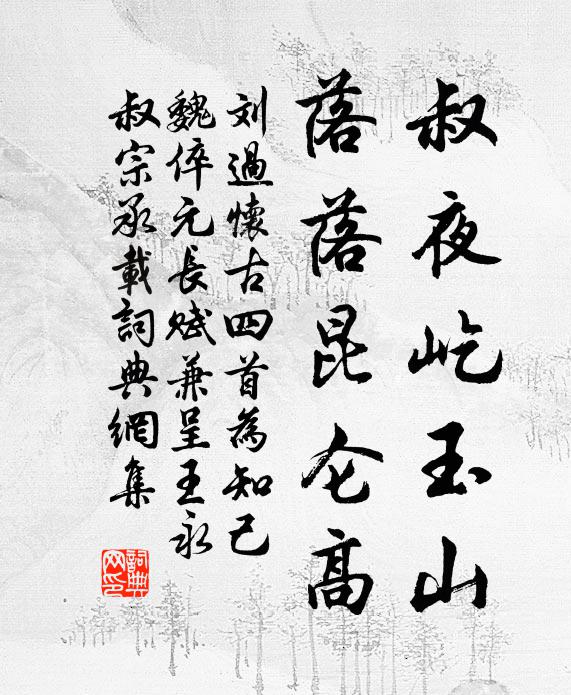 叔夜屹玉山
落落昆仑高
刘過懷古四首為知己
魏倅元長赋兼呈王永
叔宗承載詞典網集
詞典网印